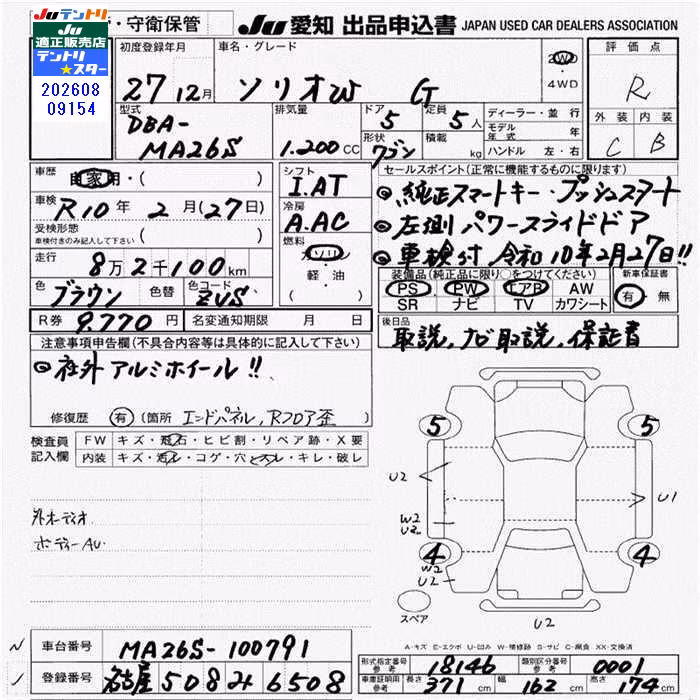 Juテントリ
Ju
適正販売店
テントリ
★スター
202608
09154
・守衛保管
Ju 愛知 出品申込書 JAPAN USED CAR DEALERS ASSOCIATION
初度登録年月
27 12月
車名・グレード
ソリオ G
2WD
4WD
評価点
R
外装 内装
C B
型式
DBA-
MA26S
排気量
1.200 CC
ドア
5
定員
5 人
形状
ワゴン
積載
kg
ディーラー・並行
モデル年式 年
ハンドル 左・右
車歴
自家用・( )
車検
R10 年 2 月 (27 日)
受検形態
車検付きのみ記入して下さい ( )
走行
8万2千100 km
色
ブラウン
色替
色コード
ZVS
R券 9.770 円
名変通知期限 月 日
シフト
I.AT
冷房
A.AC
燃料
ガソリン
軽・油
セールスポイント(正常に機能するものに限ります)
◎純正スマートキー・プッシュスタート
◎左側パワースライドドア
◎車検付 令和10年2月27日!!
装備品(純正品に限り○をつけてください)
PS PW エアB AW
SR ナビ TV カワシート
新車保証書
有・無
後日品
取説,ナビ取説,保証書
注意事項申告欄(不具合内容等は具体的に記入して下さい)
◎社外アルミホイール!!
修復歴 有 (箇所 エンドパネル,Rフロア歪)
検査員
記入欄
FW キズ・飛石・ヒビ割・リペア跡・X要
内装 キズ・汚レ・コゲ・穴・スレ・キレ・破レ
外オーディオ
ボディーAU
5 5
U2 U1
W2
U2
4 4
W2
U2
スペア
U2
A-キズ E-エクボ U-凹み W-補修跡 S-サビ C-腐食 XX-交換済
車台番号 MA26S-100791
登録番号 名古屋 508 み 6508
形式指定番号
参考
18146
類別区分番号
参考
0001
車庫証明用
参考
長さ 371 cm 幅 162 cm 高さ 174 cm